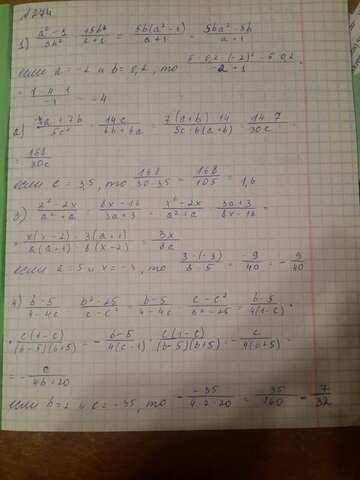 № 274
1) a² - 1 / 3b² · 15b³ / a + 1 = 5b(a² - 1) / a + 1 = 5ba² - 5b / a + 1
если a = -2 и b = 0,2, то 5 · 0,2 · (-2)² - 5 · 0,2 / -2 + 1
= 1 · 4 - 1 / -1 =
2) 7a + 7b / 5c · 14c / 6b + 6a = 7(a+b) · 14 / 5c · 6(a+b) = 14 · 7 / 30c
= 168 / 30c
если c = 3,5, то 168 / 30 · 3,5 = 168 / 105 = 1,6
3) x² - 2x / a² + a : 8x - 16 / 3a + 3 = x² - 2x / a² + a · 3a + 3 / 8x - 16 =
= x(x - 2) · 3(a + 1) / a(a + 1) · 8(x - 2) = 3x / 8a
если a = 5 и x = -3, то 3 · (-3) / 8 · 5 = -9 / 40 = - 9 / 40
4) b - 5 / 4 - 4c : b² - 25 / c - c² = b - 5 / 4 - 4c · c - c² / b² - 25 = b - 5 / 4(1 - c) ·
· c(1 - c) / (b - 5)(b + 5) = - b - 5 / 4(c - 1) · c(1 - c) / (b - 5)(b + 5) = - c / 4(b + 5) =
= - c / 4b + 20
если b = 2 и c = -35, то - -35 / 4 · 2 · 20 = 35 / 160 = 7 / 32